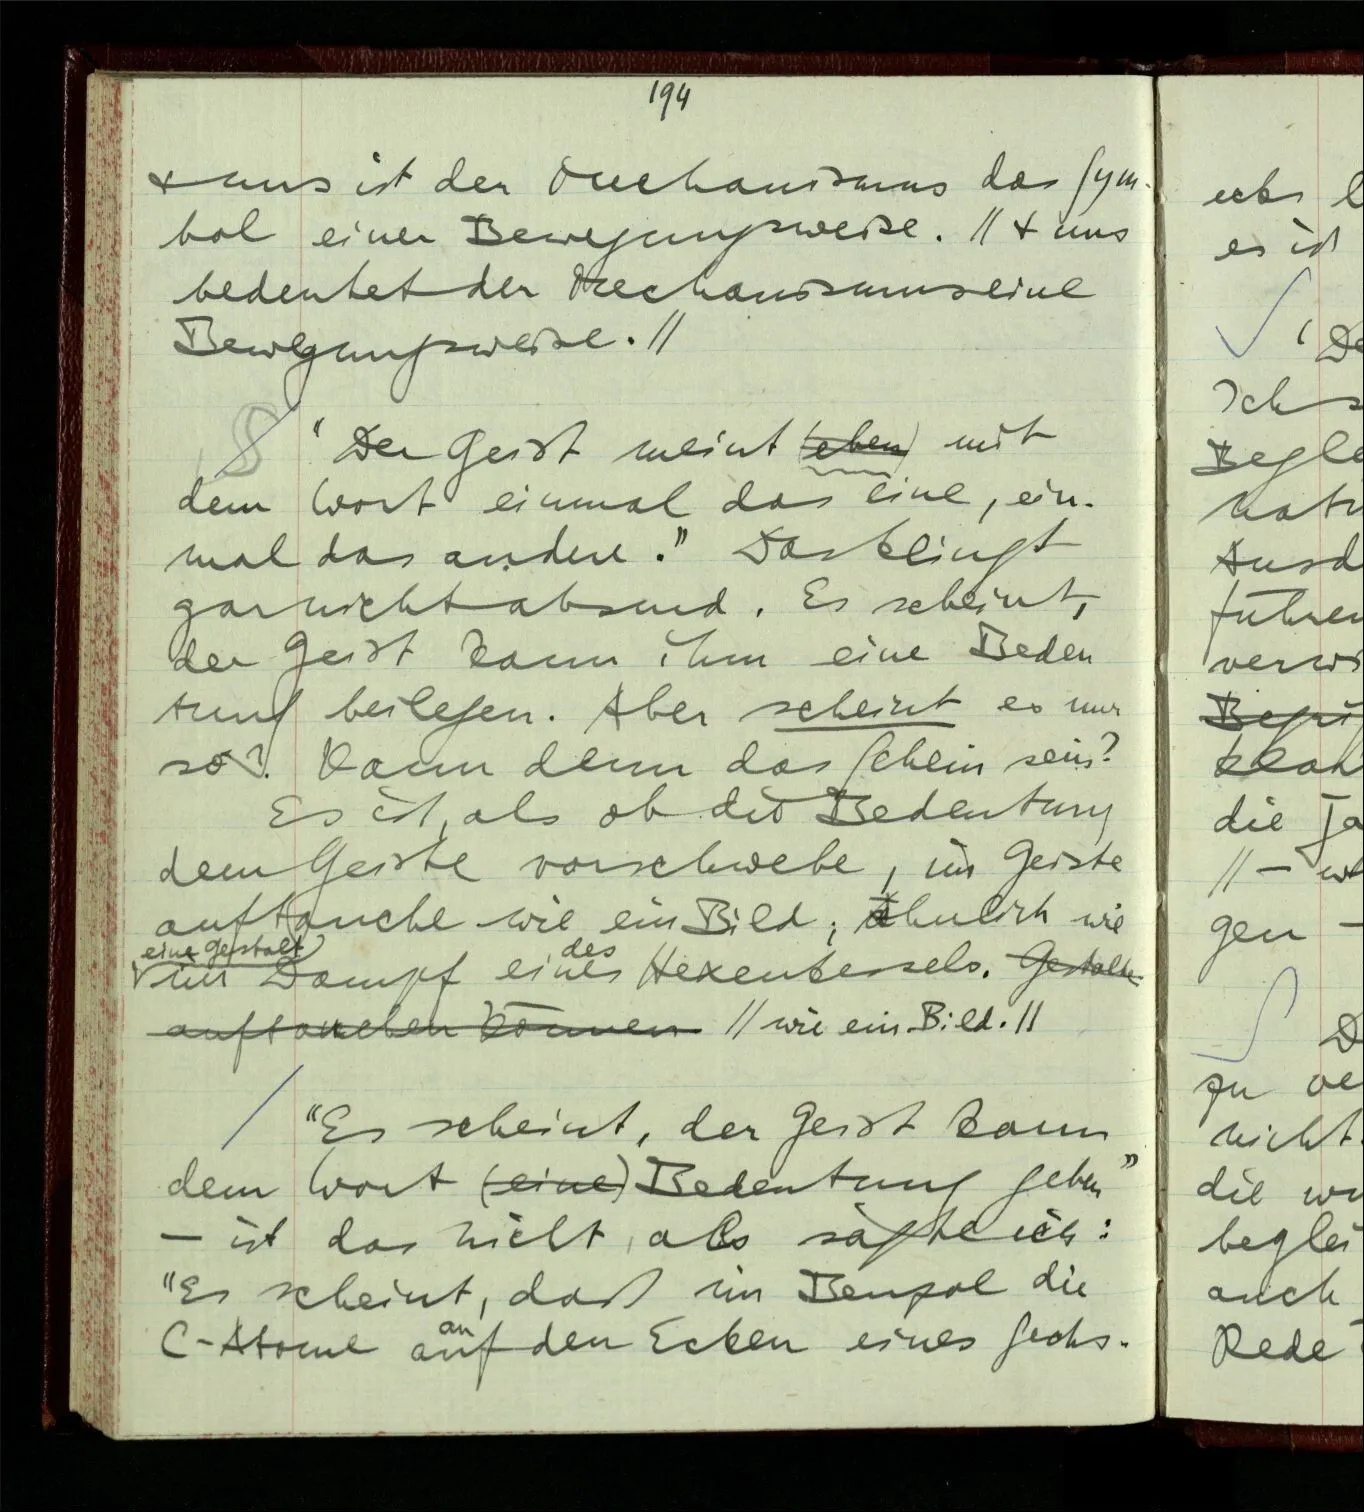 194
& uns ist der Mechanismus das Sym-
bol einer Bewegungsweise. // & uns
bedeutet der Mechanismus eine
Bewegungsweise. //
§ / "Der Geist meint (eben) mit
dem Wort einmal das eine, ein-
mal das andere." Das klingt
garnicht absurd. Es scheint,
der Geist kann ihm eine Bedeu
tung beilegen. Aber scheint es nur
so? Kann denn das Schein sein?
Es ist, als ob die Bedeutung
dem Geiste vorschwebe, im Geiste
auftauche wie ein Bild; ähnlich wie
eine Gestalt
des
im Dampf eines Hexenkessels. Gestalten
auftauchen können // wie ein Bild. //
/ "Es scheint, der Geist kann
dem Wort (eine) Bedeutung geben"
– ist das nicht, als sagte ich:
"Es scheint, daß im Benzol die
an
C-Atome auf den Ecken eines Sechs-
es ist
✓ "De
Ich
Begle
natu
Ausd
führen
verwi
Begri
die Ta
// –
gen –
D
zu ve
nicht
die wu
beglei
auch
Rede